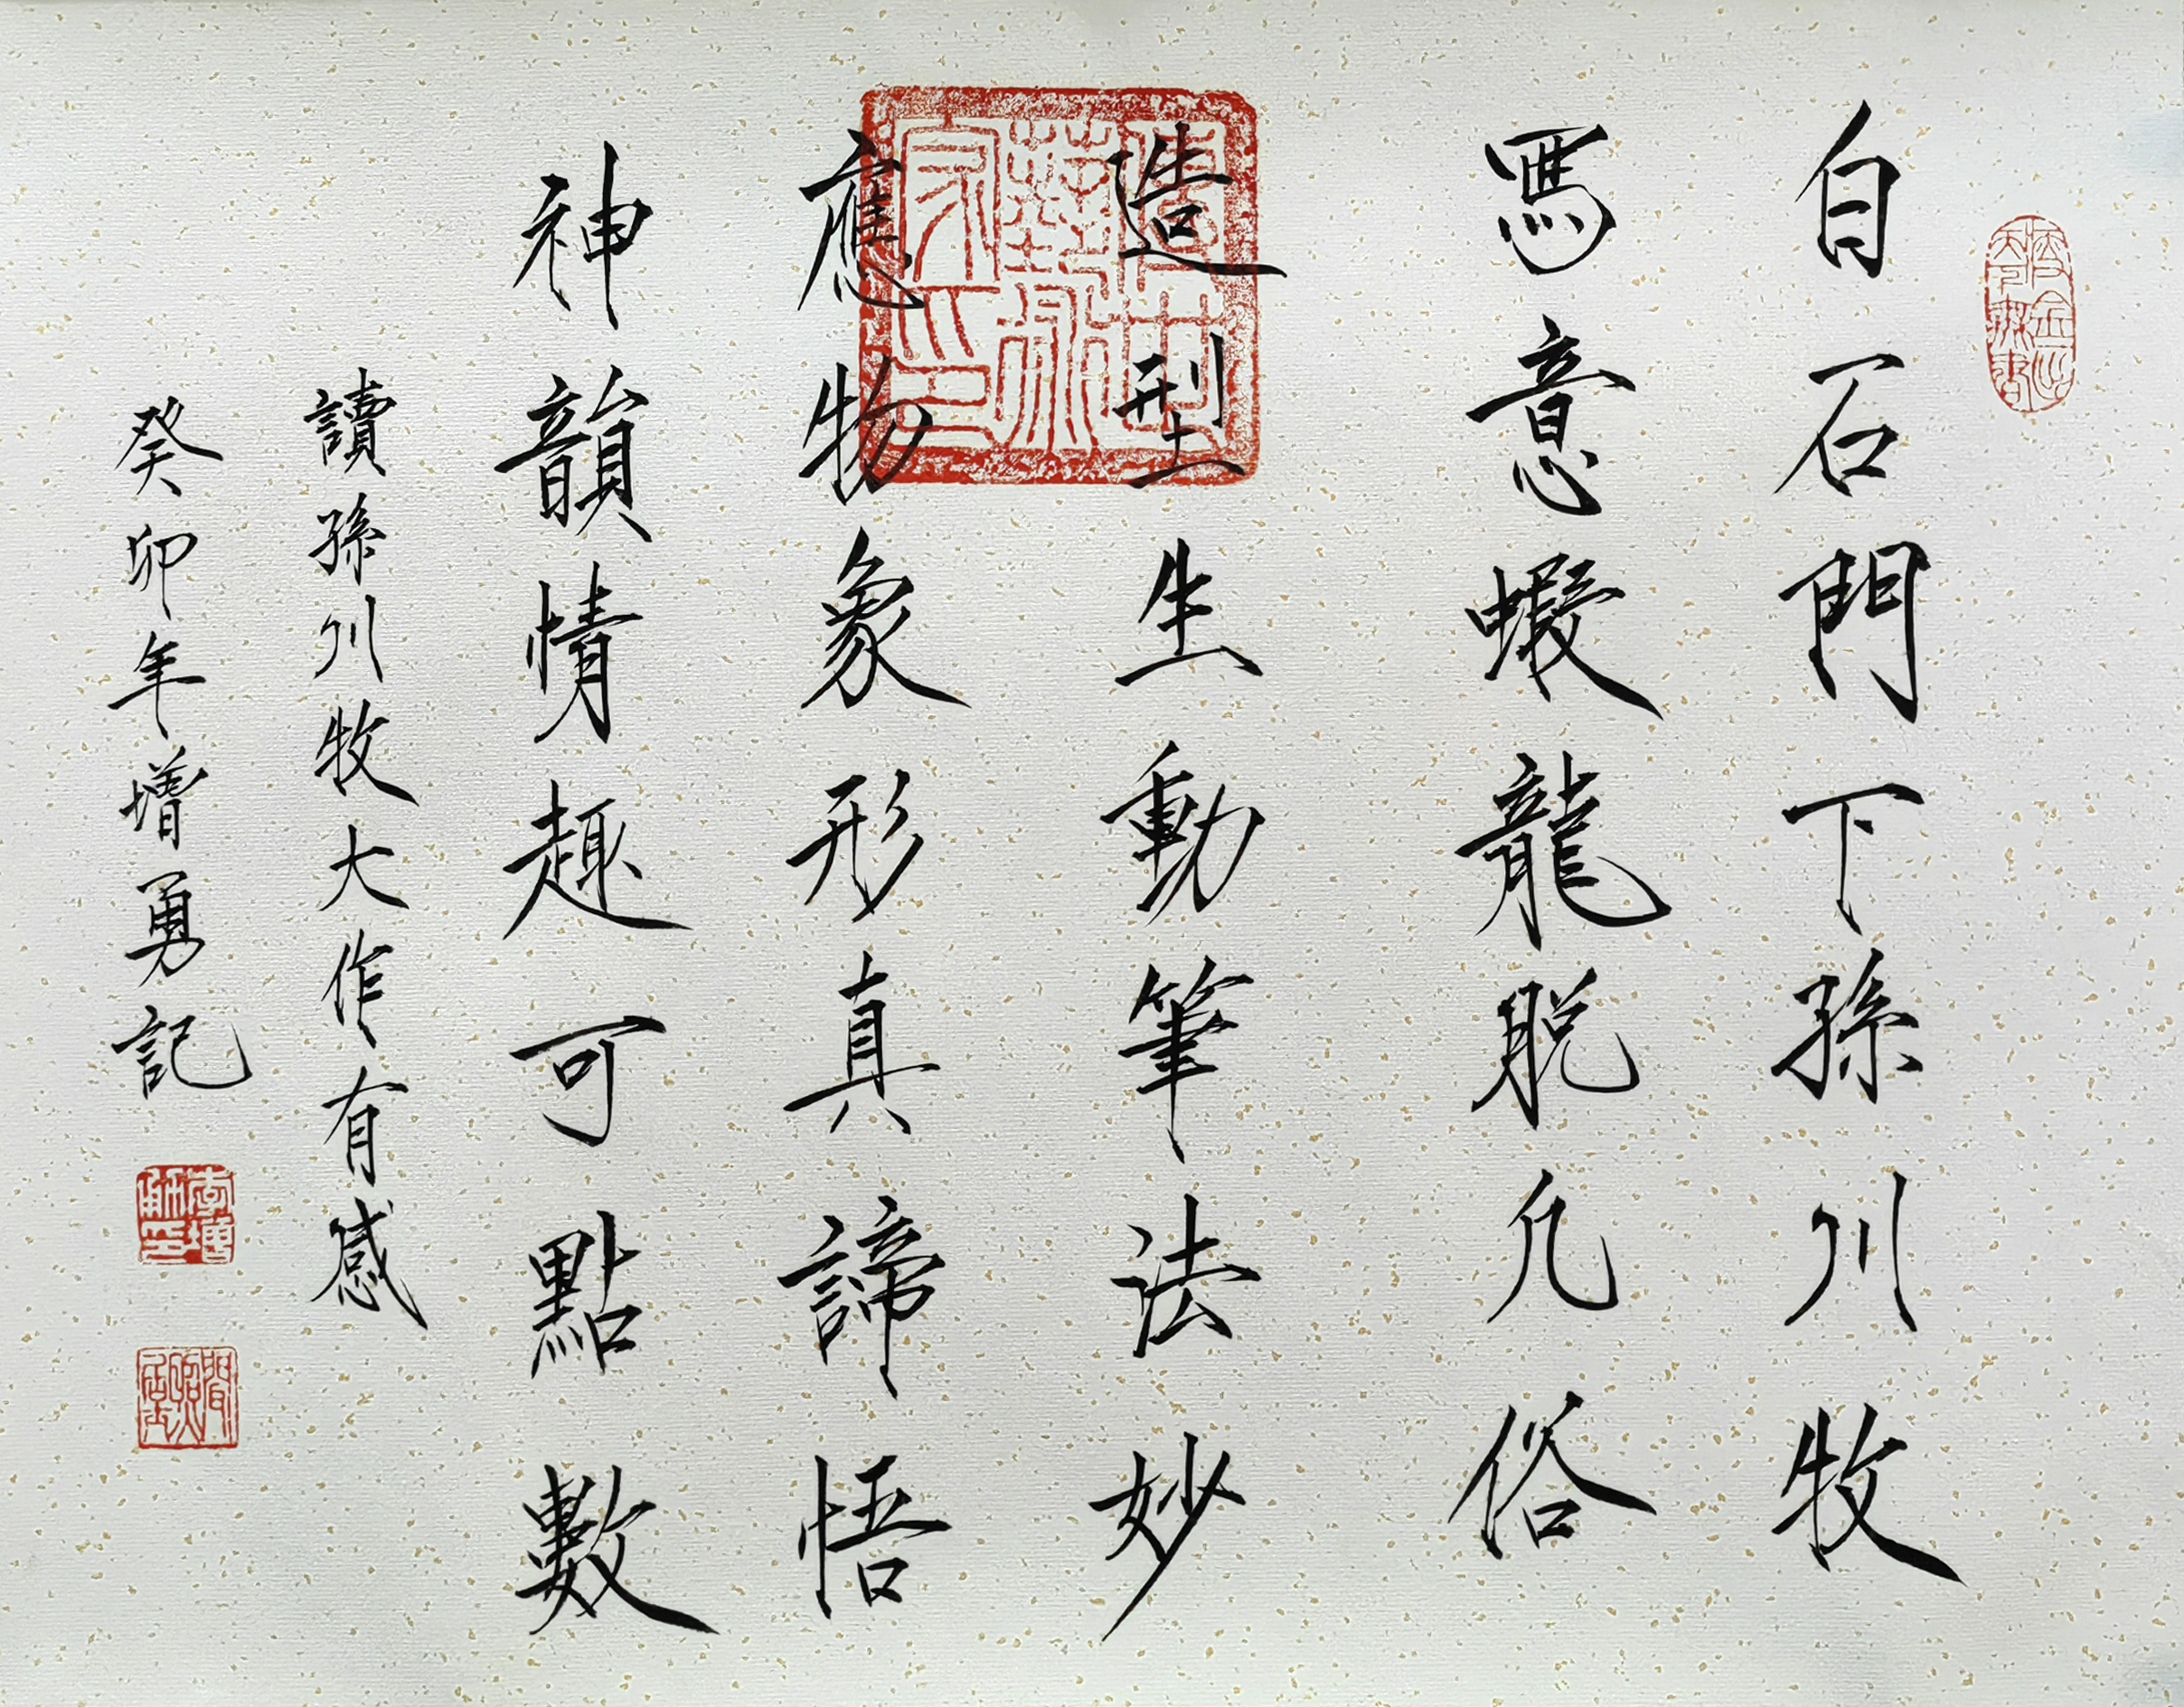 白石門下孫川牧
寫意蝦龍脫凡俗
造型生動筆法妙
應物象形真諦悟
神韻情趣可點數
讀孫川牧大作有感
癸卯年增勇記